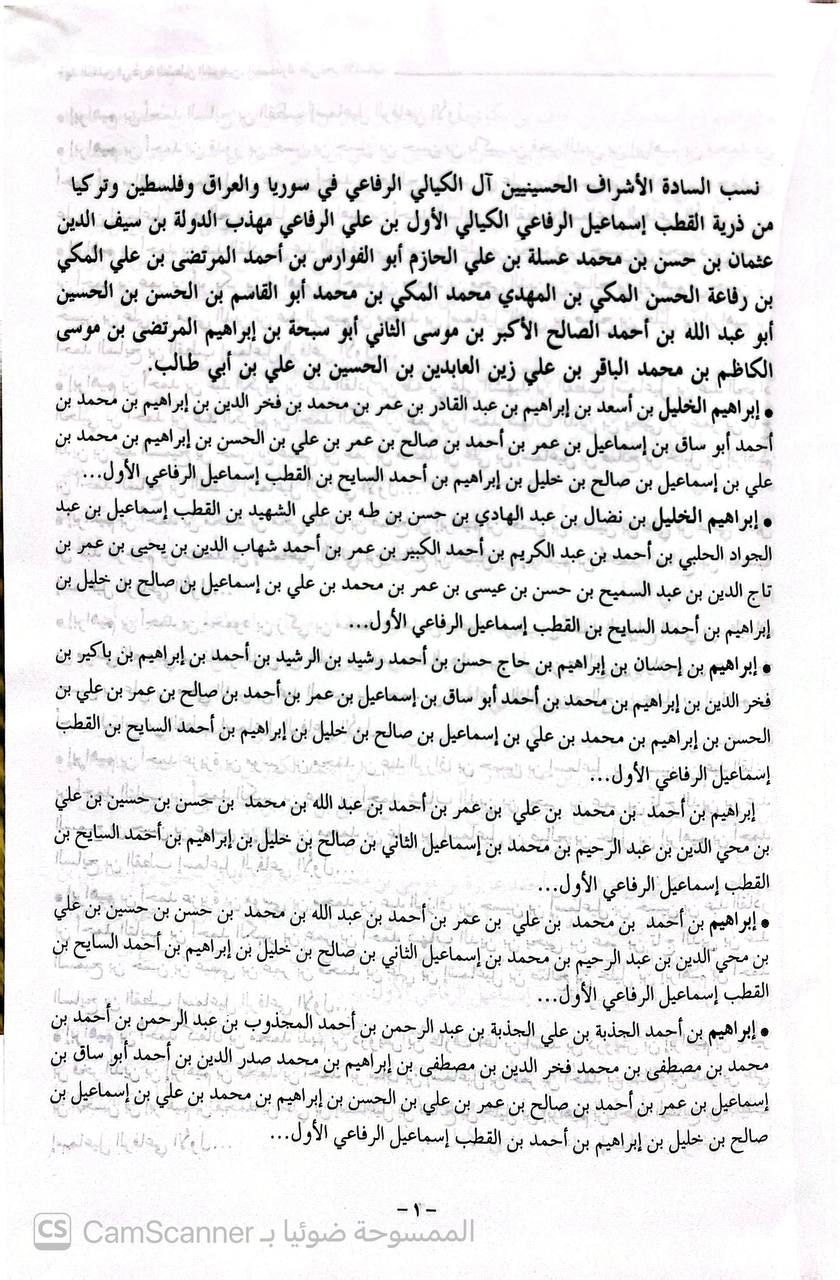 نسب السادة الأشراف الحسينيين آل الكيالي الرفاعي في سوريا والعراق وفلسطين وتركيا
من ذرية القطب إسماعيل الرفاعي الكيالي الأول بن علي الرفاعي مهذب الدولة بن سيف الدين
عثمان بن حسن بن محمد عسلة بن علي الحازم أبو الفوارس بن أحمد المرتضى بن علي المكي
بن رفاعة الحسن المكي بن المهدي محمد المكي بن محمد أبو القاسم بن الحسن بن الحسين
أبو عبد الله بن أحمد الصالح الأكبر بن موسى الثاني أبو سبحة بن إبراهيم المرتضى بن موسى
الكاظم بن محمد الباقر بن علي زين العابدين بن الحسين بن علي بن أبي طالب.
• إبراهيم الخليل بن أسعد بن إبراهيم بن عبد القادر بن عمر بن محمد بن فخر الدين بن إبراهيم بن محمد بن
أحمد أبو ساق بن إسماعيل بن عمر بن أحمد بن صالح بن عمر بن علي بن الحسن بن إبراهيم بن محمد بن
علي بن إسماعيل بن صالح بن خليل بن إبراهيم بن أحمد السايح بن القطب إسماعيل الرفاعي الأول...
• إبراهيم الخليل بن نضال بن عبد الهادي بن حسن بن طه بن علي الشهيد بن القطب إسماعيل بن عبد
الجواد الحلبي بن أحمد بن عبد الكريم بن أحمد الكبير بن عمر بن أحمد شهاب الدين بن يحيى بن عمر بن
تاج الدين بن عبد السميح بن حسن بن عيسى بن عمر بن محمد بن علي بن إسماعيل بن صالح بن خليل بن
إبراهيم بن أحمد السايح بن القطب إسماعيل الرفاعي الأول...
• إبراهيم بن إحسان بن إبراهيم بن حاج حسن بن أحمد رشيد بن الرشيد بن أحمد بن إبراهيم بن باكير بن
فخر الدين بن إبراهيم بن محمد بن أحمد أبو ساق بن إسماعيل بن عمر بن أحمد بن صالح بن عمر بن علي بن
الحسن بن إبراهيم بن محمد بن علي بن إسماعيل بن صالح بن خليل بن إبراهيم بن أحمد السايح بن القطب
إسماعيل الرفاعي الأول...
إبراهيم بن أحمد بن محمد بن علي بن عمر بن أحمد بن عبد الله بن محمد بن حسن بن حسين بن علي
بن محي الدين بن عبد الرحيم بن محمد بن إسماعيل الثاني بن صالح بن خليل بن إبراهيم بن أحمد السايح بن
القطب إسماعيل الرفاعي الأول...
• إبراهيم بن أحمد بن محمد بن علي بن عمر بن أحمد بن عبد الله بن محمد بن حسن بن حسين بن علي
بن محي الدين بن عبد الرحيم بن محمد بن إسماعيل الثاني بن صالح بن خليل بن إبراهيم بن أحمد السايح بن
القطب إسماعيل الرفاعي الأول...
• إبراهيم بن أحمد الجذبة بن علي الجذبة بن عبد الرحمن بن أحمد المجذوب بن عبد الرحمن بن أحمد بن
محمد بن مصطفى بن محمد فخر الدين بن مصطفى بن إبراهيم بن محمد صدر الدين بن أحمد أبو ساق بن
إسماعيل بن عمر بن أحمد بن صالح بن عمر بن علي بن الحسن بن إبراهيم بن محمد بن علي بن إسماعيل بن
صالح بن خليل بن إبراهيم بن أحمد بن القطب إسماعيل الرفاعي الأول...
- ١ -
CS CamScanner الممسوحة ضوئيا بـ